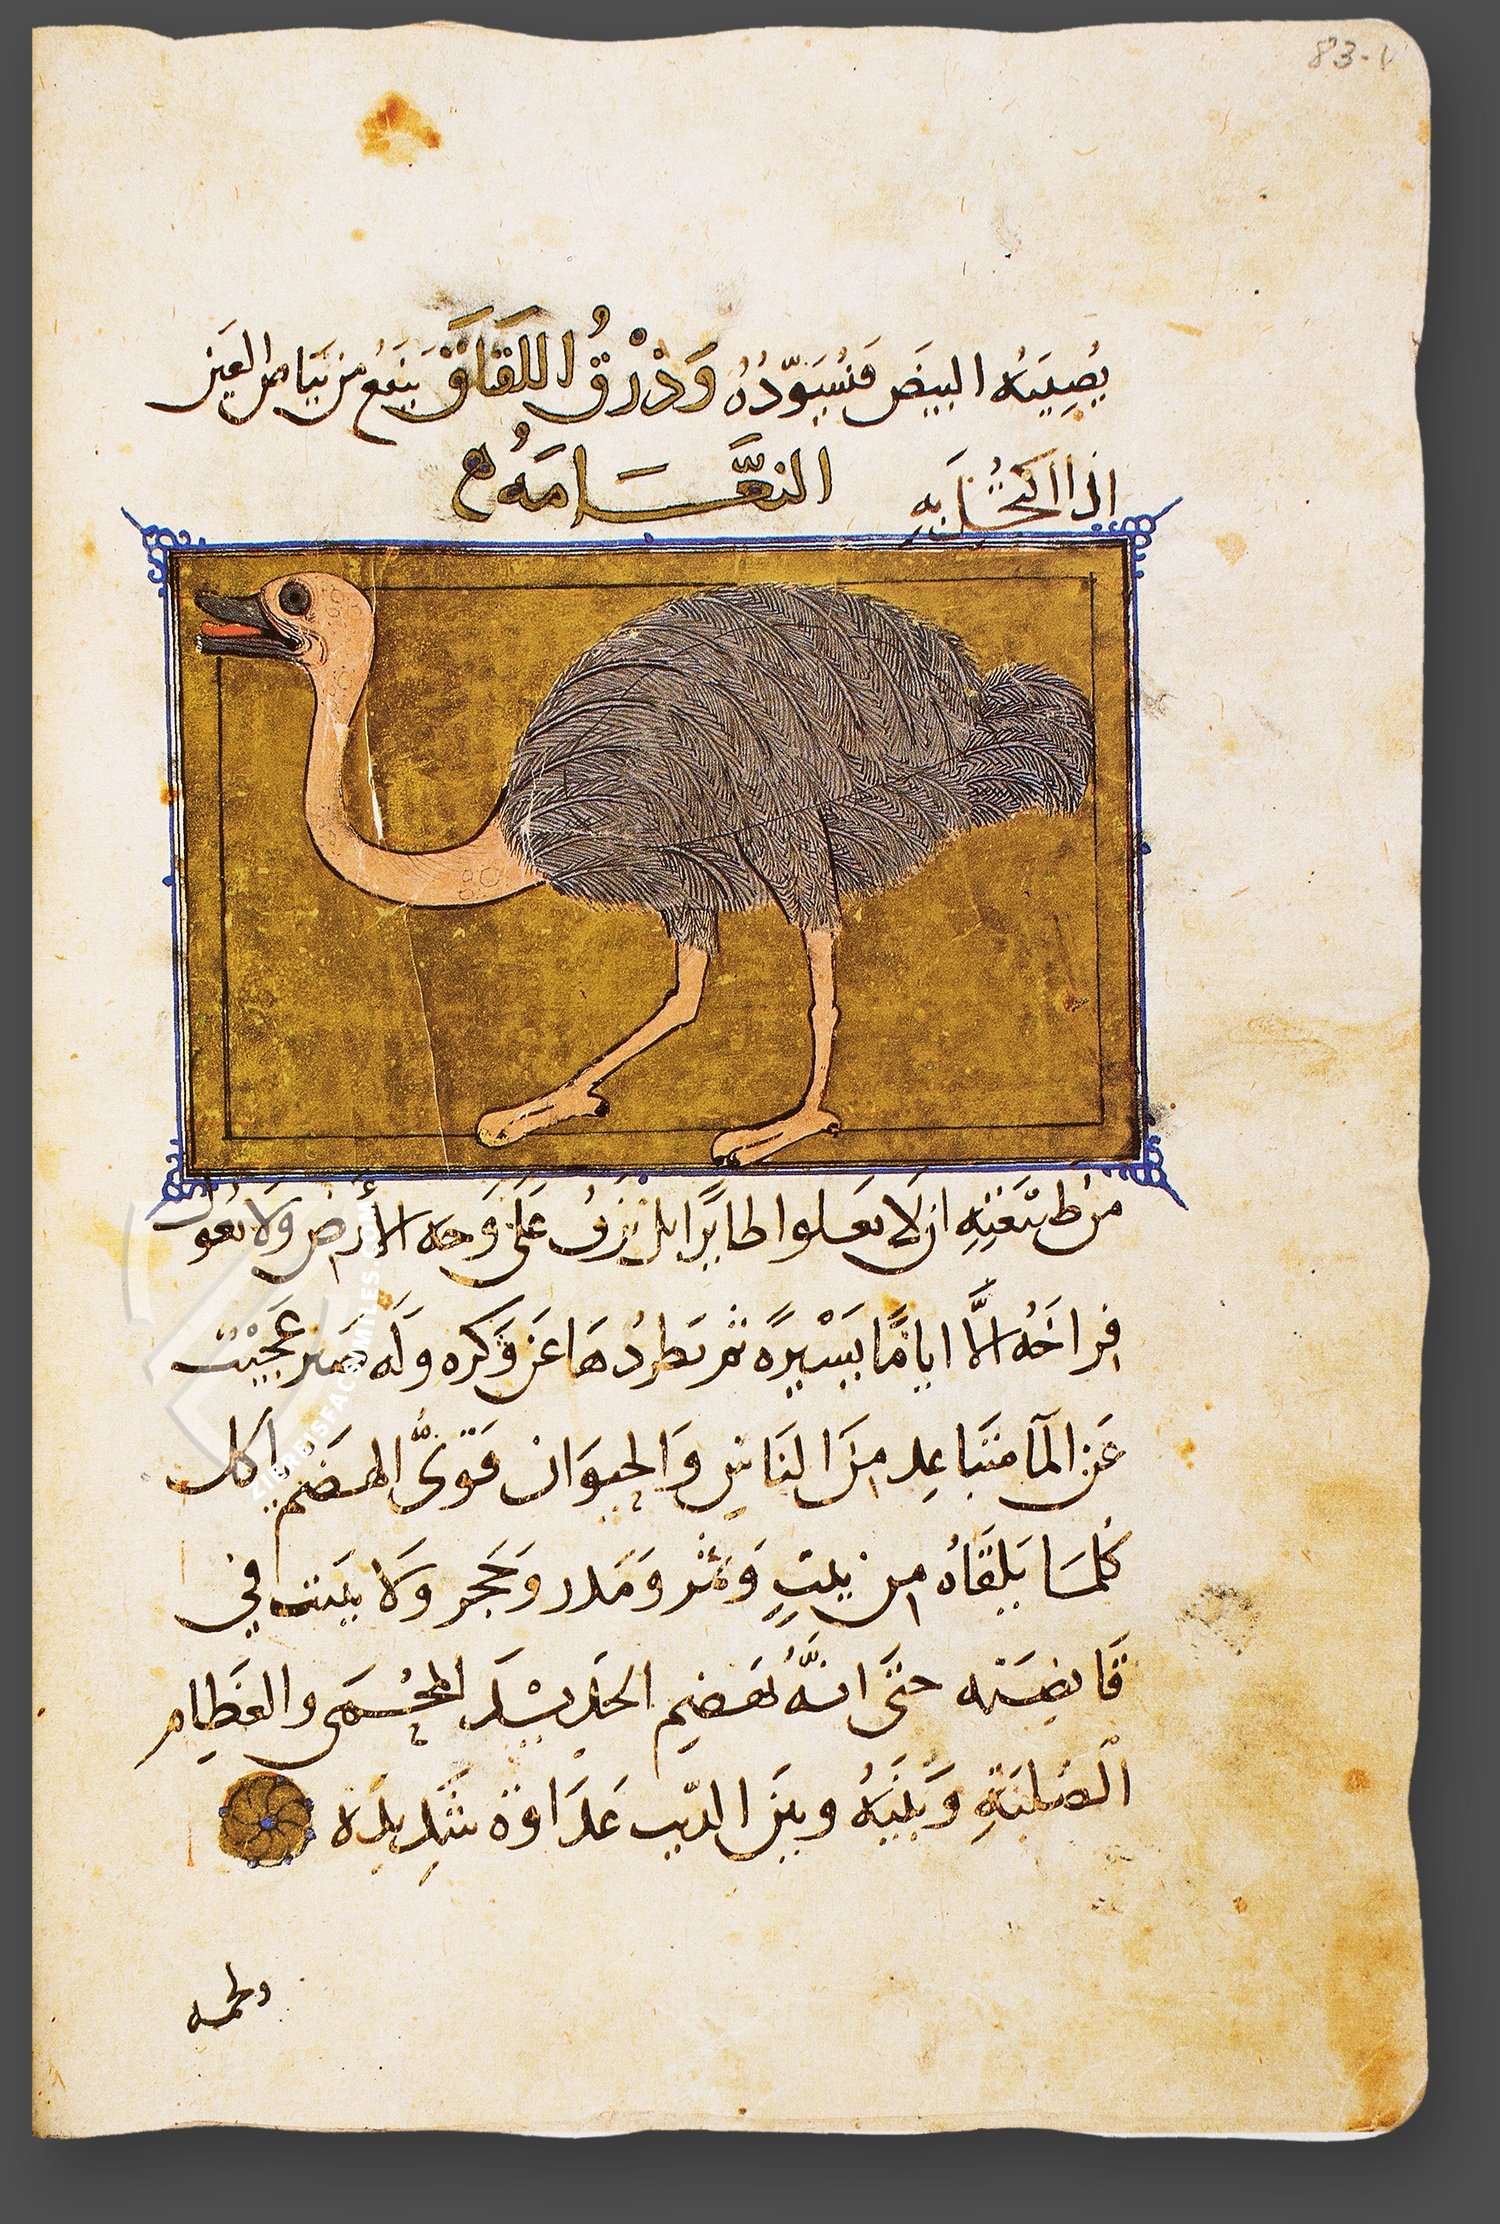 83-v
يُصِيبه البيض فنُسَوّدُه وَذرْقُ اللقالق يَنفع من بياض العين
اذا اكتحل به
النعَّامَهُ
من طبعِهِ ان لا يعلوا طايرًا بل يزف على وَجه الأرض وَلا يعول
فراخَهُ الاَّ ايامًا يَسْيرهً ثم يطردُها عَن وَكره وَله صبر عَجيب
عَن المآ متباعِد مِنَ النَاس وَالحيوَان قوىُّ الهضم ياكل
كلما يَلقَاه من نبتٍ وَثمر وَمَدر وَحَجر وَلا يبت في
قانصَته حتى انهُ يهضِم الحديْد المحْمى والعظَامِ
الصُلبَةِ وَبَينَهُ وبين الدّيب عَدَاوة شَدِيدَه
ولحمه
ZIEREISFACSIMILES.COM